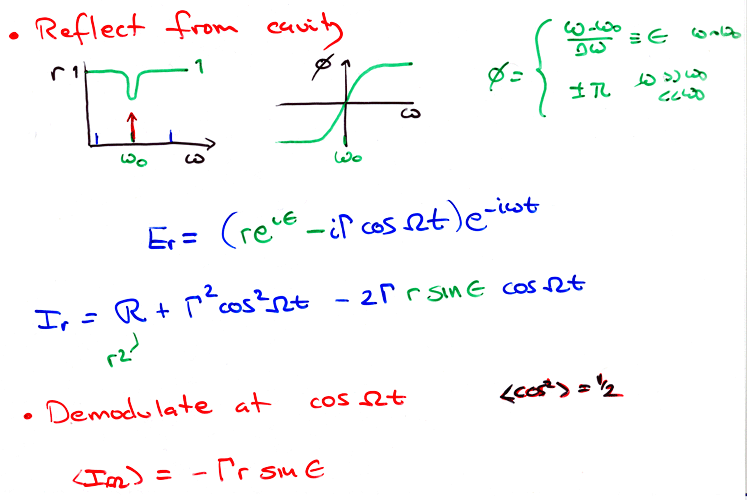 • Reflect from cavity
r 1 1
ω₀ ω
φ ω
ω₀
φ = { (ω-ω₀)/δω ≡ ε ω~ω₀
±π ω >> ω₀
<< ω₀
Er = (re^{iε} - iΓ cos Ωt) e^{-iωt}
Ir = R + Γ² cos² Ωt - 2Γ r sin ε cos Ωt
r²
• Demodulate at cos Ωt <cos²> = 1/2
<Im> = - Γ r sin ε